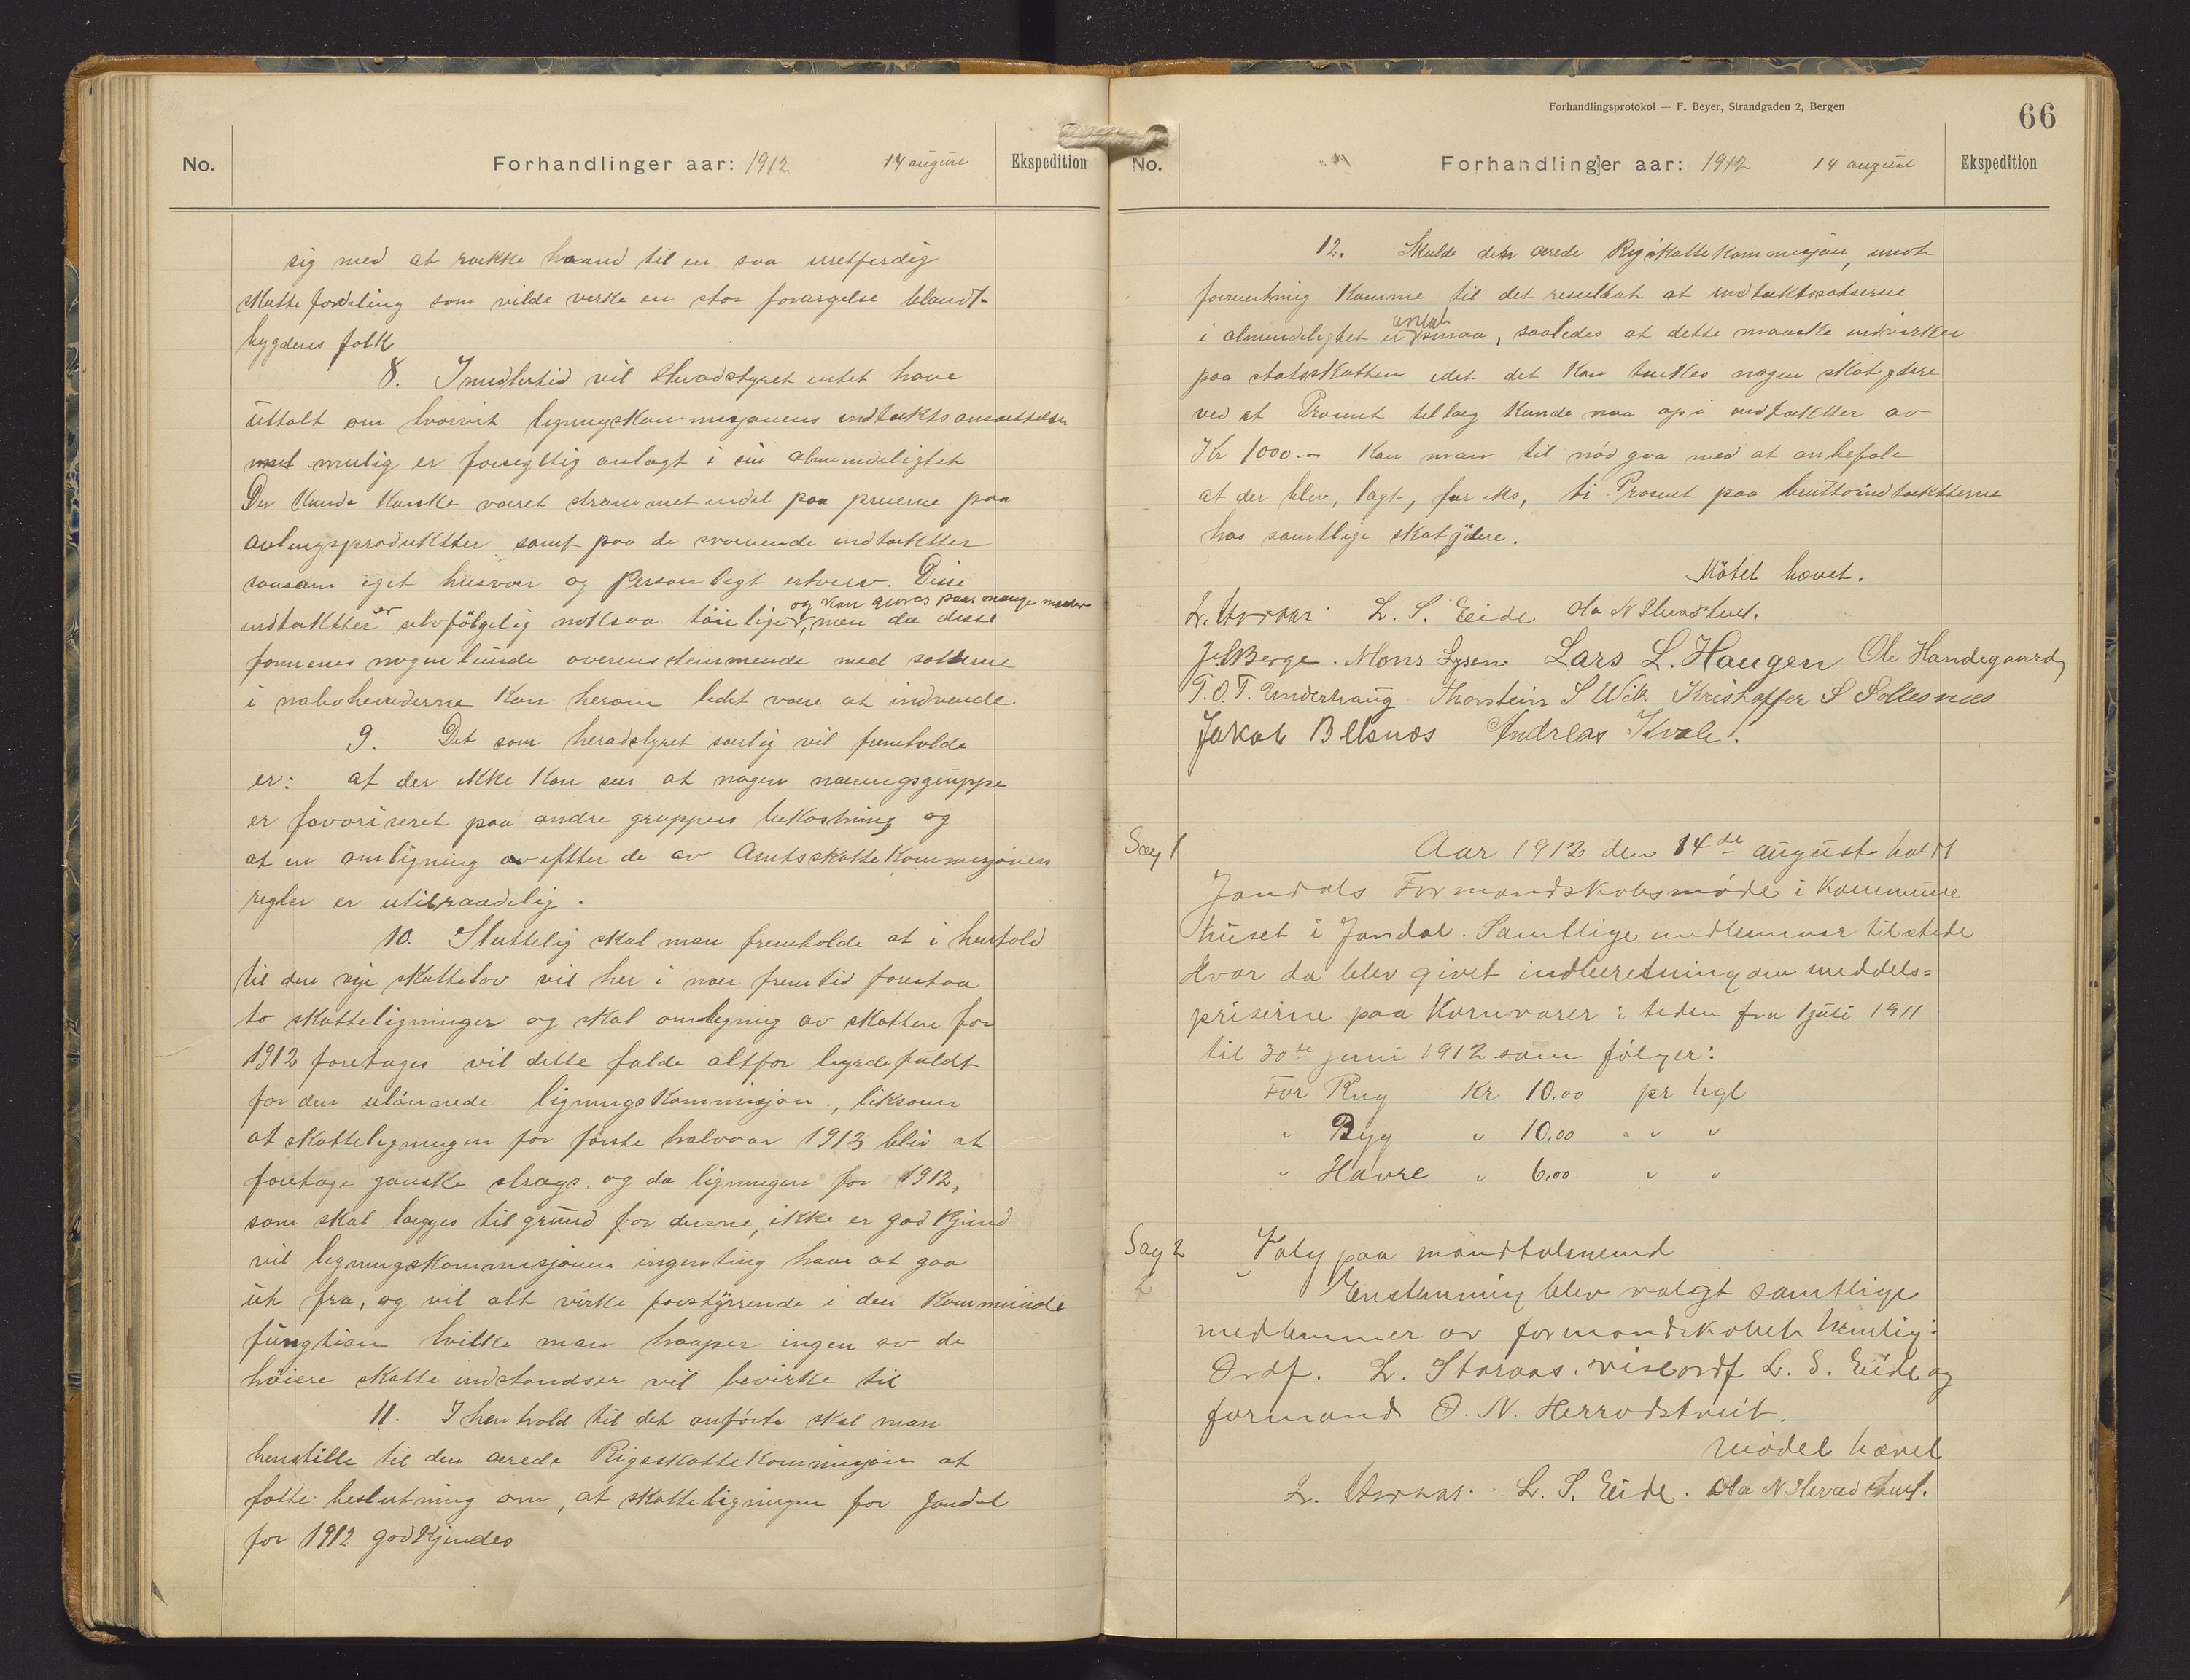 No. Forhandlinger aar: 1912 14 august Ekspedition
sig med at række haand til en saa uretferdig
skattefordeling som vilde verke en stor forargelse blandt
bygdens folk
8. Imidlertid vil Heradstyret intet have
uttalt om hvorvit ligningskommisjonens indtektsansættelser
mulig er forsigtig anlagt i sin almindelighet
Der kunde kanske været strammet indel paa priserne paa
avlingsproduktter samt paa de svævende indtektter
saasom eget husvær og Personligt erhverv. Disse
og kan gjøres paa mange maader
indtektter er selvfølgelig noksaa tøielige, men da disse
formenes nogenlunde overensstemmende med satserne
i naboherederne kan herom lidet være at indvende.
9. Det som heradstyret særlig vil fremholde
er: at der ikke kan sees at nogen næringsgruppe
er favoriseret paa andre gruppers bekostning og
at en omligning av efter de av Amtsskattekommisjonens
regler er utilraadelig.
10. Sluttelig skal man fremholde at i henhold
til den nye skattelov vil her i nær fremtid forestaa
to skatteligninger og skal omligning av skatten for
1912 foretages vil dette falde altfor byrdefuldt
for den ulønnede ligningskommisjon, liksom
at skatteligningen for første halvaar 1913 blir at
foretage ganske strags, og da ligningen for 1912,
som skal lægges til grund for denne, ikke er godkjend
vil ligningskommisjonen ingenting have at gaa
ut fra, og vil alt virke forstyrrende i den Kommunale
fungtion hvilke man haaper ingen av de
høiere skatteindstandser vil bevirke til
11. I henhold til det anførte skal man
henstille til den ærede Rigsskattekommisjon at
fatte beslutning om, at skatteligningen for Jondal
for 1912 godkjendes
Forhandlingsprotokol — F. Beyer, Strandgaden 2, Bergen
66
No. Forhandlinger aar: 1912 14 august Ekspedition
12. Skulde den ærede Rigskattekommisjon, imot
formentning komme til det resultat at indtektssatserne
antat
i almindelighet er smaa, saaledes at dette maaske indvirker
paa statsskatten idet det kan tænkes nogen skatydere
ved et Prosent tillæg kunde naa op i indtektter av
Kr 1000.- kan man til nød gaa med at anbefale
at der blev, lagt, for eks, ti Prosent paa bruttoindtektterne
hos samtlige skatydere.
Møtet hævet.
L. Storaas L. S. Eide Ola N Heradstveit.
J. Berge. Mons Lysen Lars L. Haugen Ole Handegaard
T. O. T. Underhaug Thorstein S Wik Kristoffer S Sollesnes
Jakob Belsnes Andreas Kvale!
Sag 1 Aar 1912 den 14de august holdt
Jondals Formandskabsmøde i Kommune
huset i Jondal. Samtlige medlemmer tilstede
Hvor da blev givet indberetning om meddels=
priserne paa Kornvarer i tiden fra 1 juli 1911
til 30te juni 1912 som følger:
For Rug Kr 10.00 pr hgl
" Byg " 10.00 " " "
" Havre " 6.00 " "
Sag 2 Valg paa mandtalsmend
2 Enstemmig blev valgt samtlige
medlemmer av formandskabet nemlig:
Ordf. L. Storaas. viseordf L. S. Eide og
formand O. N. Herrodstveit.
Mødet hævet
L. Storaas. L. S. Eide. Ola N Heradstveit.